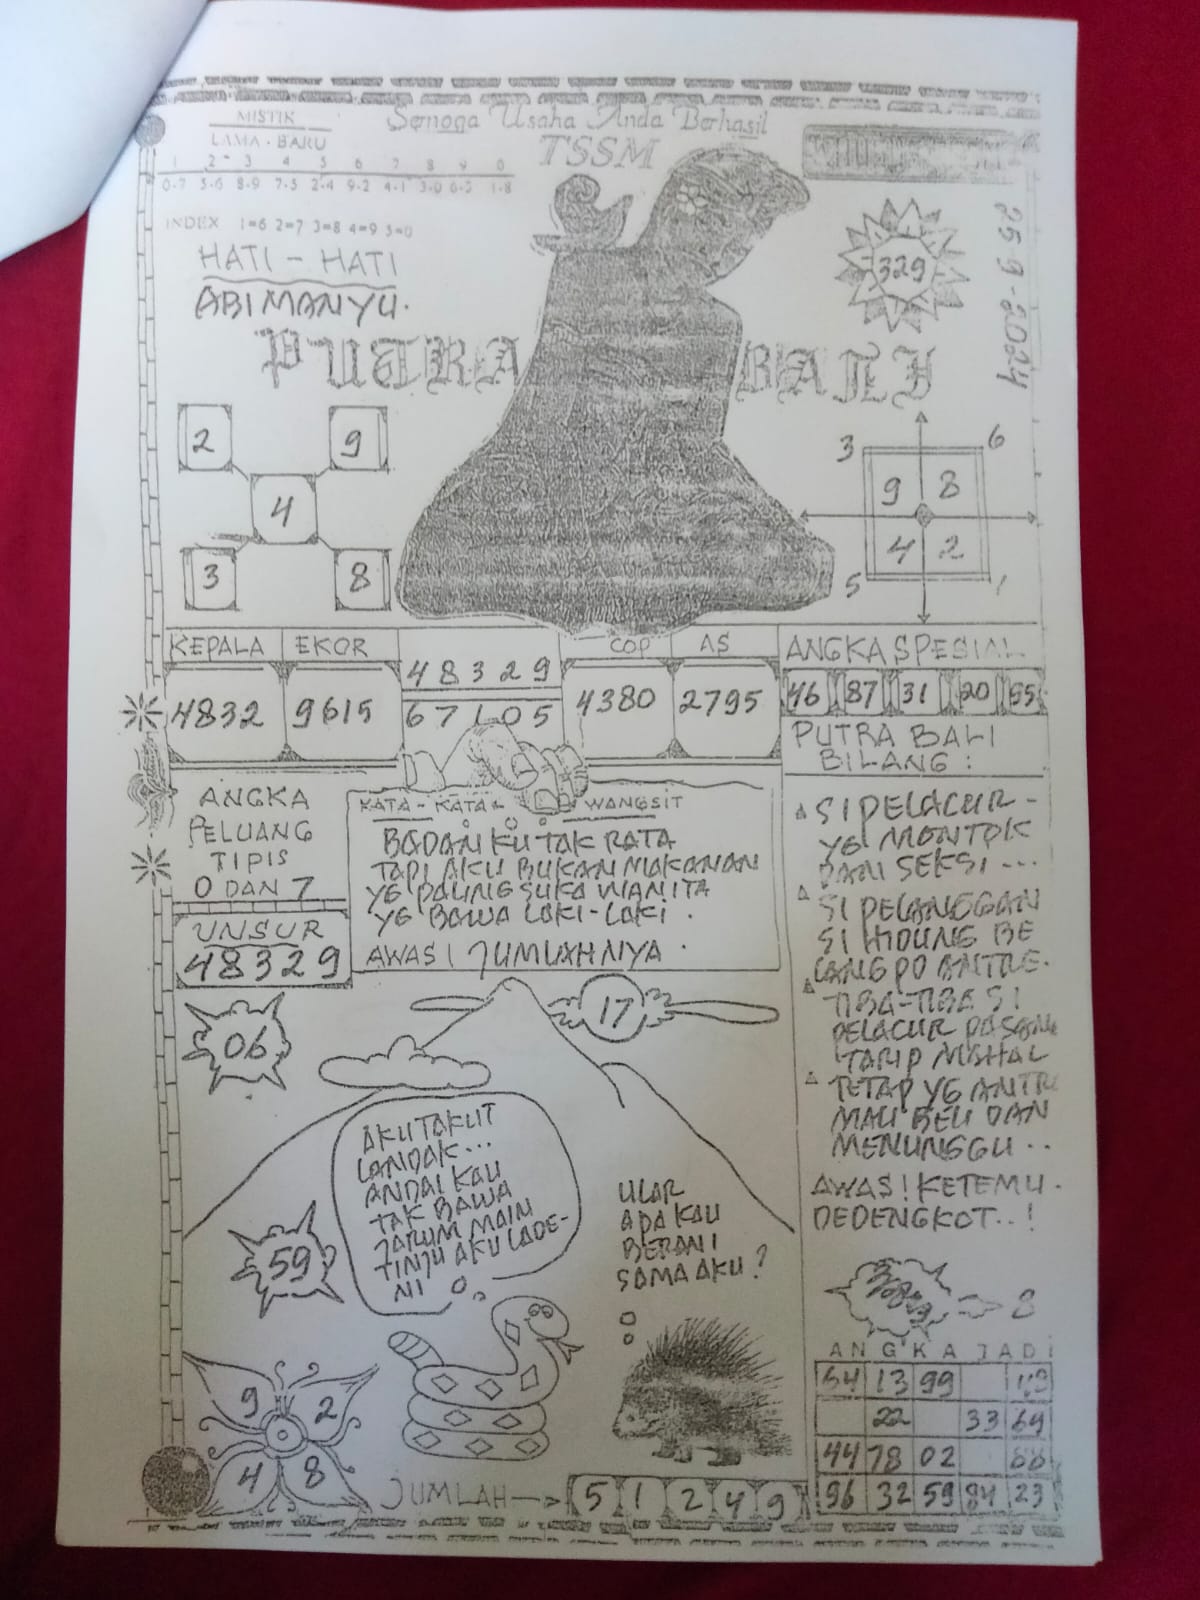 MISTIK
LAMA - BARU
1 2 3 4 5 6 7 8 9 0
0-7 5-6 8-9 7-5 2-4 9-2 4-1 3-0 6-3 1-8
INDEX 1=6 2=7 3=8 4=9 5=0
Semoga Usaha Anda Berhasil
TSSM
25-9-2024
HATI - HATI
ABIMANYU.
329
PUTRA BALI
2 9
4
3 8
3 6
9 8
4 2
5 1
KEPALA EKOR
4832 9615
48329
67105
COP AS
4380 2795
ANGKA SPESIAL
46 87 31 20 55
ANGKA
PELUANG
TIPIS
0 DAN 7
UNSUR
48329
KATA - KATA WANGSIT
BADANKU TAK RATA
TAPI AKU BUKAN MAKANAN
YG PALING SUKA WANITA
YG BAWA LAKI-LAKI.
AWAS! JUMLAHNYA.
PUTRA BALI
BILANG :
SI PELACUR -
YG MONTOK
DAN SEKSI ---
SI PELANGGAN
SI HIDUNG BE
LANG PD ANTRE.
TIBA-TIBA SI
PELACUR PASANG
TARIP MAHAL
TETAP YG ANTRI
MAU BELI DAN
MENUNGGU..
AWAS! KETEMU.
DEDENGKOT..!
06
17
59
AKU TAKUT
LANDAK...
ANDAI KAU
TAK BAWA
JARUM MAIN
TINJU AKU LADE-
NI
ULAR
APA KAU
BERANI
SAMA AKU?
8
9 2
4 8
JUMLAH 5 1 2 4 9
ANGKA JADI
64 13 99
22 33 69
44 78 02
96 32 59 84 23